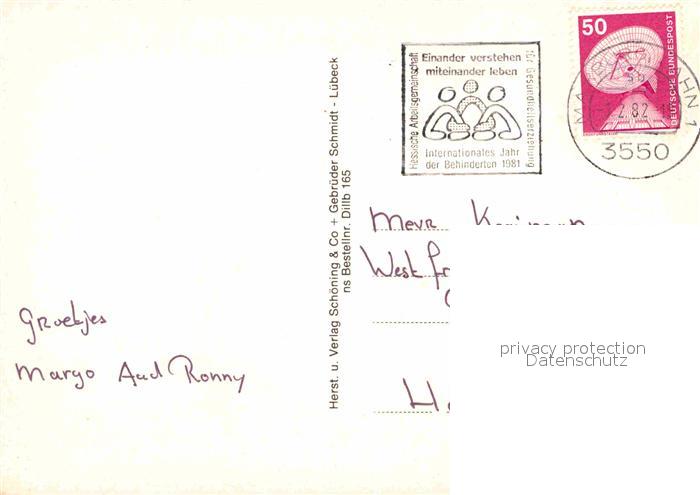 Groetjes
Margo Aad Ronny
Herst. u. Verlag Schöning & Co + Gebrüder Schmidt - Lübeck
ns Bestellnr. Dillb 165
Hessische Arbeitsgemeinschaft
Einander verstehen
miteinander leben
für Gesundheitserziehung
Internationales Jahr
der Behinderten 1981
50
DEUTSCHE BUNDESPOST
2.82
3550
Mevr
West
privacy protection
Datenschutz